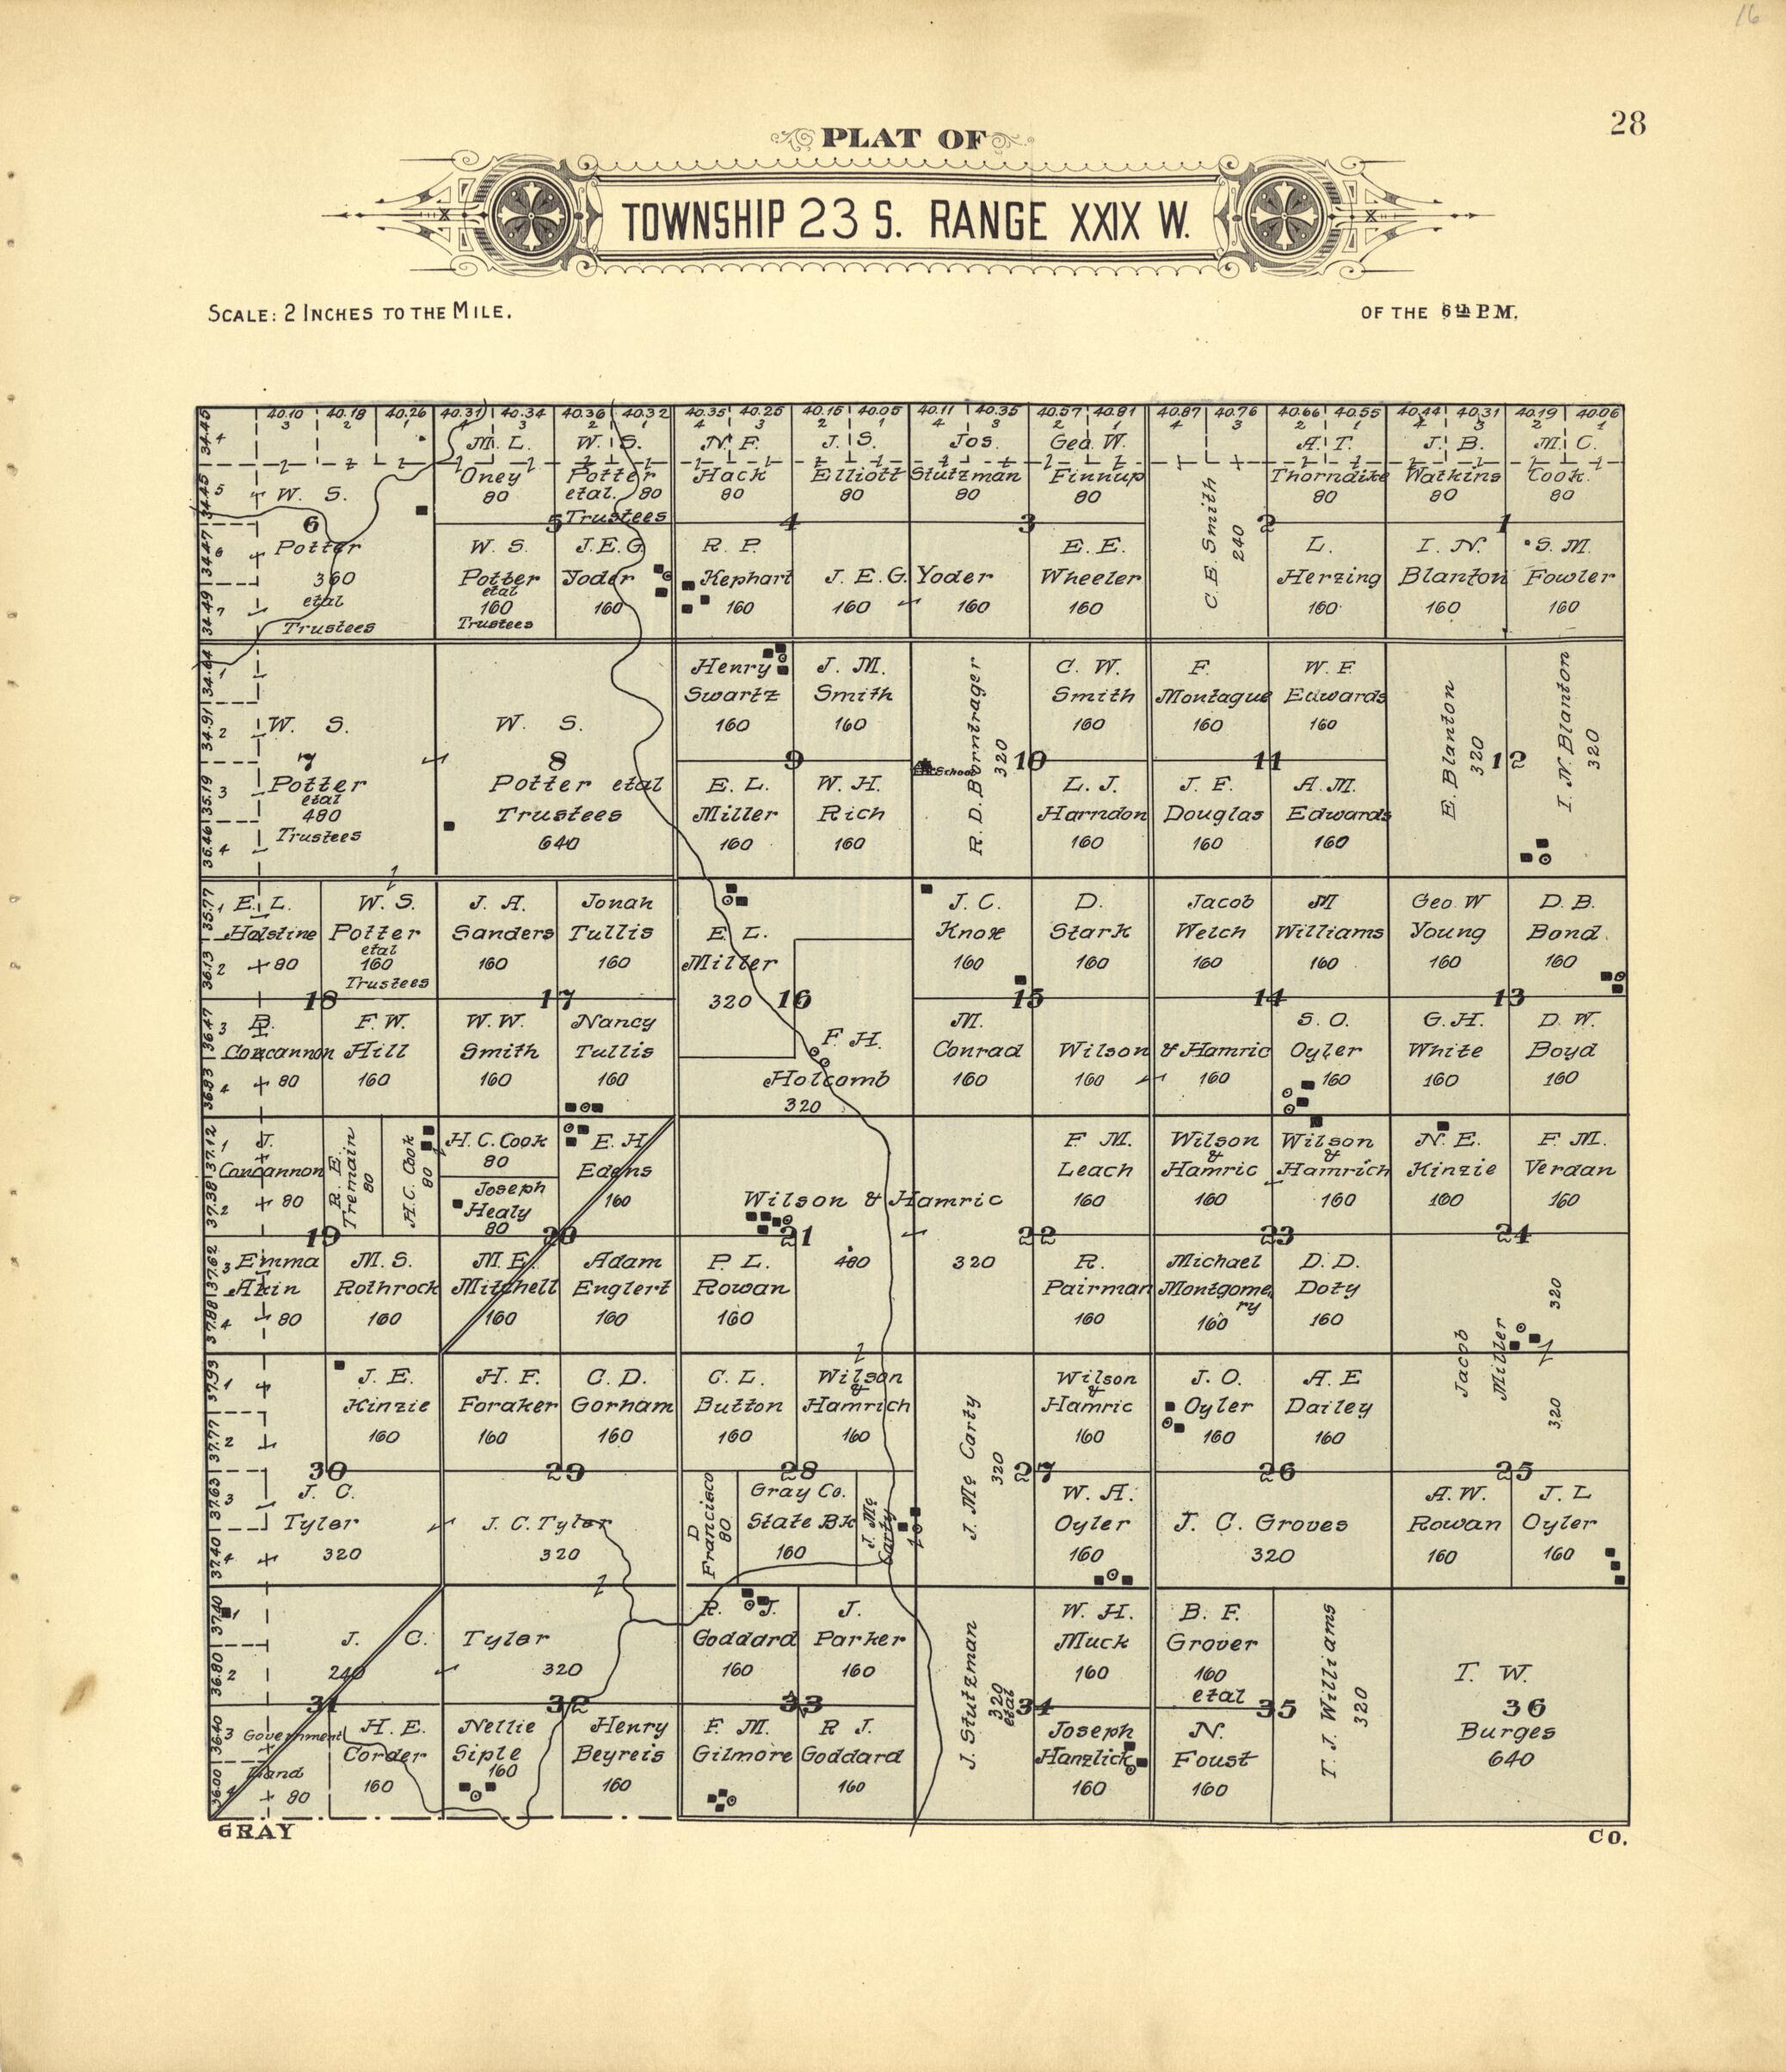 16
28
PLAT OF
TOWNSHIP 23 S. RANGE XXIX W.
SCALE: 2 INCHES TO THE MILE.
OF THE 6th P.M.
40.10 40.18 40.26 40.31 40.34 40.36 40.32 40.35 40.25 40.15 40.05 40.11 40.35 40.57 40.81 40.87 40.76 40.66 40.55 40.44 40.31 40.19 40.06
3 2 1 4 3 2 1 4 3 2 1 4 3 2 1 4 3 2 1 4 3 2 1
34.45 4
34.45 5
34.47 6
34.49 7
W. S.
6
Potter
360
etal
Trustees
M. L.
Oney
80
W. S.
Potter
etal. 80
Trustees
5
W. S.
Potter
etal
160
Trustees
J. E. G.
Yoder
160
N. F.
Hack
80
J. S.
Elliott
80
4
R. P.
Kephart
160
J. E. G. Yoder
160
160
Jos.
Stutzman
80
Geo. W.
Finnup
80
3
E. E.
Wheeler
160
C. E. Smith
240
A. T.
Thorndike
80
2
L.
Herzing
160
J. B.
Watkins
80
M. C.
Cook
80
1
I. N.
Blanton
160
S. M.
Fowler
160
34.64 1
34.91 2
35.19 3
35.46 4
W. S.
7
Potter
etal
480
Trustees
W. S.
8
Potter etal
Trustees
640
Henry
Swartz
160
J. M.
Smith
160
9
E. L.
Miller
160
W. H.
Rich
160
School
R. D. Borntrager
320
10
C. W.
Smith
160
L. J.
Harndon
160
F.
Montague
160
W. F.
Edwards
160
11
J. F.
Douglas
160
A. M.
Edwards
160
E. Blanton
320
12
I. N. Blanton
320
35.77 1
36.13 2
36.47 3
36.83 4
E. L.
Holstine
80
W. S.
Potter
etal
160
Trustees
18
Concannon
80
F. W.
Hill
160
J. A.
Sanders
160
Jonah
Tullis
160
17
W. W.
Smith
160
Nancy
Tullis
160
E. L.
Miller
320
16
F. H.
Holcomb
320
J. C.
Knox
160
D.
Stark
160
15
M.
Conrad
160
Wilson & Hamric
160
160
Jacob
Welch
160
M
Williams
160
14
S. O.
Oyler
160
Geo. W
Young
160
D. B.
Bond
160
13
G. H.
White
160
D. W.
Boyd
160
37.12 1
37.38 2
37.62 3
37.88 4
J.
Concannon
80
R. E.
Tremain
80
H. C. Cook
80
19
Emma
Akin
80
M. S.
Rothrock
160
H. C. Cook
80
Joseph
Healy
80
E. H
Edens
160
20
M. E.
Mitchell
160
Adam
Englert
160
Wilson & Hamric
21
480
320
P. L.
Rowan
160
F. M.
Leach
160
22
R.
Pairman
160
Wilson
&
Hamric
160
Wilson
&
Hamrich
160
23
Michael
Montgomery
160
D. D.
Doty
160
N. E.
Kinzie
160
F. M.
Verdan
160
24
Jacob Miller
320
320
37.93 1
37.77 2
37.63 3
37.40 4
J. E.
Kinzie
160
30
J. C.
Tyler
320
H. F.
Foraker
160
C. D.
Gorham
160
29
J. C. Tyler
320
C. L.
Button
160
Wilson
&
Hamrich
160
28
D
Francisco
80
Gray Co.
State Bk
160
J. Mc
Carty
J. Mc Carty
320
27
Wilson
&
Hamric
160
W. A.
Oyler
160
J. O.
Oyler
160
A. E
Dailey
160
26
J. C. Groves
320
25
A. W.
Rowan
160
J. L
Oyler
160
37.40 1
36.80 2
36.40 3
36.00 4
J. C. Tyler
240
320
31
Government
Land
80
H. E.
Corder
160
32
Nellie
Siple
160
Henry
Beyreis
160
R. J.
Goddard
160
J.
Parker
160
33
F. M.
Gilmore
R J.
Goddard
160
J. Stutzman
320
etal
34
W. H.
Muck
160
Joseph
Hanzlick
160
B. F.
Grover
160
etal
35
N.
Foust
160
T. J. Williams
320
T. W.
36
Burges
640
GRAY
CO.